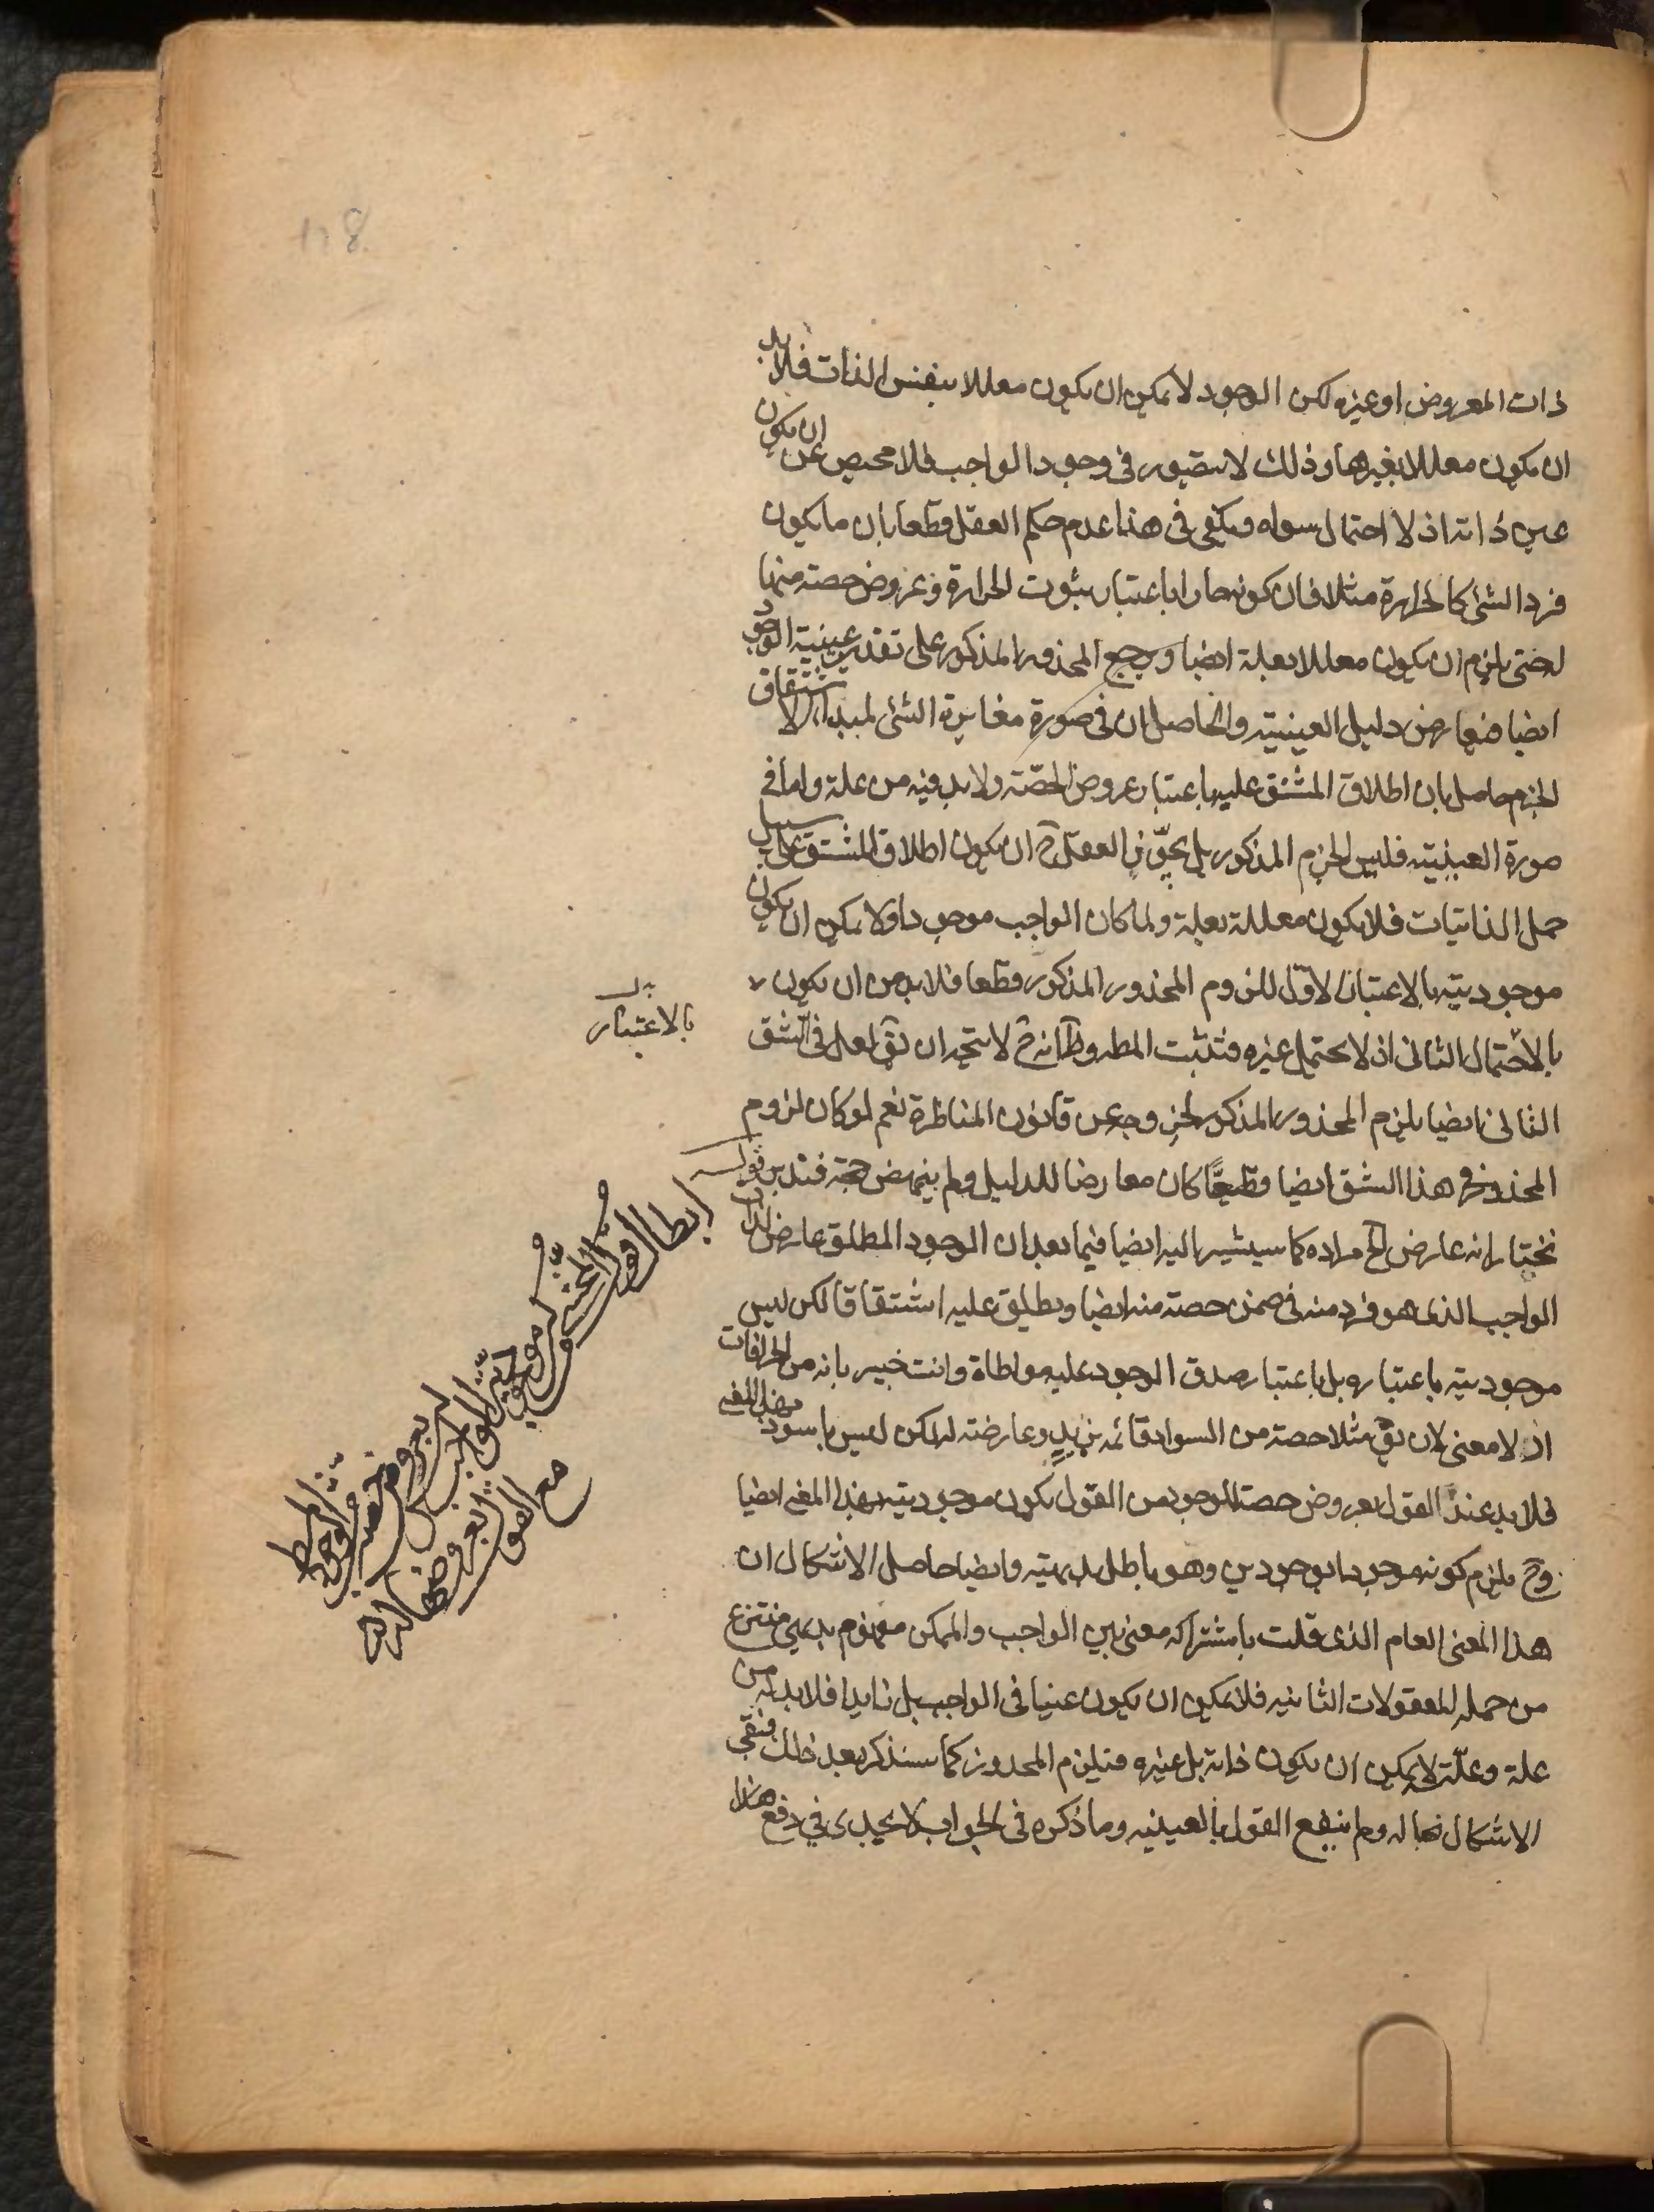 ذات المعروض او غيره لكن الوجود لا يمكن ان يكون معللا بنفس الذات فلا بد
ان يكون معللا بغيرها وذلك لا يتصور في وجود الواجب فلا محيص عن ان يكون
عين ذاته اذ لا احتمال سواه ويكفي في هذا عدم حكم العقل قطعا بان ما يكون
فرد الشئ كالحرارة مثلا فان كونه حارا باعتبار ثبوت الحرارة وعروض حصته منها
له حتى يلزم ان يكون معللا بعلة ايضا ويرجع المحذور المذكور على تقدير عينية الوجود
ايضا فيعارض دليل العينية والحاصل ان في صورة مغايرة الشئ لمبدأ الاشتقاق
الجزم حاصل بان اطلاق المشتق عليه باعتبار عروض الحصّة ولا بد فيه من علة واما في
صورة العينية فليس الجزم المذكور بل يجوّز العقل ح ان يكون اطلاق المشتق على سبيل
حمل الذاتيات فلا يكون معللة بعلة ولما كان الواجب موجودا ولا يمكن ان يكون
موجوديته بالاعتبار الاوّل للزوم المحذور المذكور قطعا فلا بد من ان يكون
بالاحتمال الثاني اذ لا يحتمل غيره فتثبت المط وظ انه ح لا يتجه ان يق لعل في الشق
الثاني ايضا يلزم المحذور المذكور لخروجه عن قانون المناظرة نعم لو كان لزوم
المحذور في هذا الشق ايضا قطعيًّا كان معارضا للدليل ولم ينهض حجة فتدبر قوله
نختار انه عارض الخ مراده كما سيشير اليه ايضا فيما بعد ان الوجود المطلق عارض لذات
الواجب الذي هو فرد منه في ضمن حصته منه ايضا ويطلق عليه اشتقاقا لكن ليس
موجوديته باعتباره بل باعتبار صدق الوجود عليه مواطاة وانت خبير بانه من الخرافات
اذ لا معنى لان يق مثلا حصة من السواد قائمة بزيد وعارضته له لكن ليس باسود بهذا المعنى
فلا بد عند القول بعروض حصة الوجود من القول بكون موجوديته بهذا المعنى ايضا
وح يلزم كونه موجودا بوجودين وهو باطل بديهية وايضا حاصل الاشكال ان
هذا المعنى العام الذي قلت باشتراكه معنى بين الواجب والممكن مفهوم بديهي منتزع
من جملة المعقولات الثانية فلا يمكن ان يكون عينا في الواجب بل زايدا فلا بد له من
علة وعلّته لا يمكن ان يكون ذاته بل غيره فيلزم المحذور كما سنذكر بعد ذلك فبقي
الاشكال بحاله ولم ينفع القول بالعينية وما ذكره في الجواب لا يجدى في دفع هذا
بالاعتبار
ابطال القول
مع القول